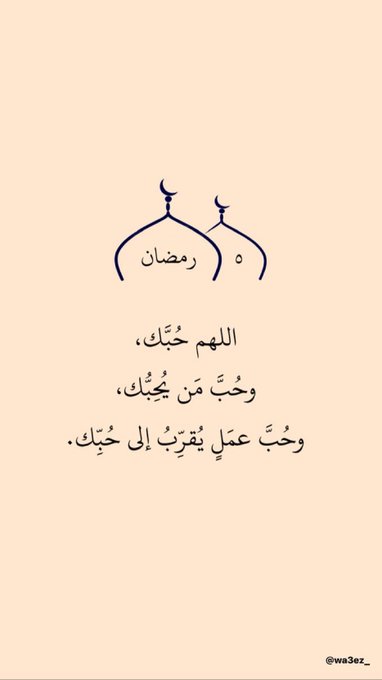 ٥ رمضان
اللهم حُبَّك،
وحُبَّ مَن يُحِبُّك،
وحُبَّ عمَلٍ يُقرِّبُ إلى حُبِّك.
@wa3ez_